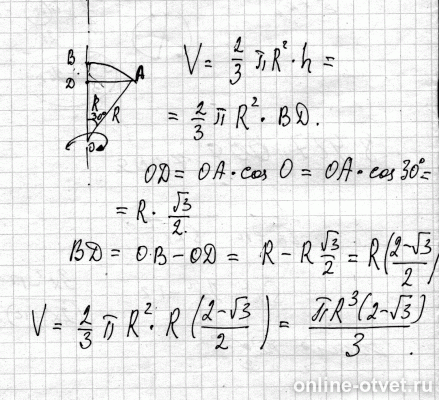 V = 2/3 πR²·h =
= 2/3 πR²·BD.
B
D
A
R
30°
R
O
OD = OA·cos O = OA·cos 30° =
= R·√3/2.
BD = OB – OD = R – R √3/2 = R(2–√3/2)
V = 2/3 πR²·R(2–√3/2) = πR³(2–√3)/3.
online-otvet.ru